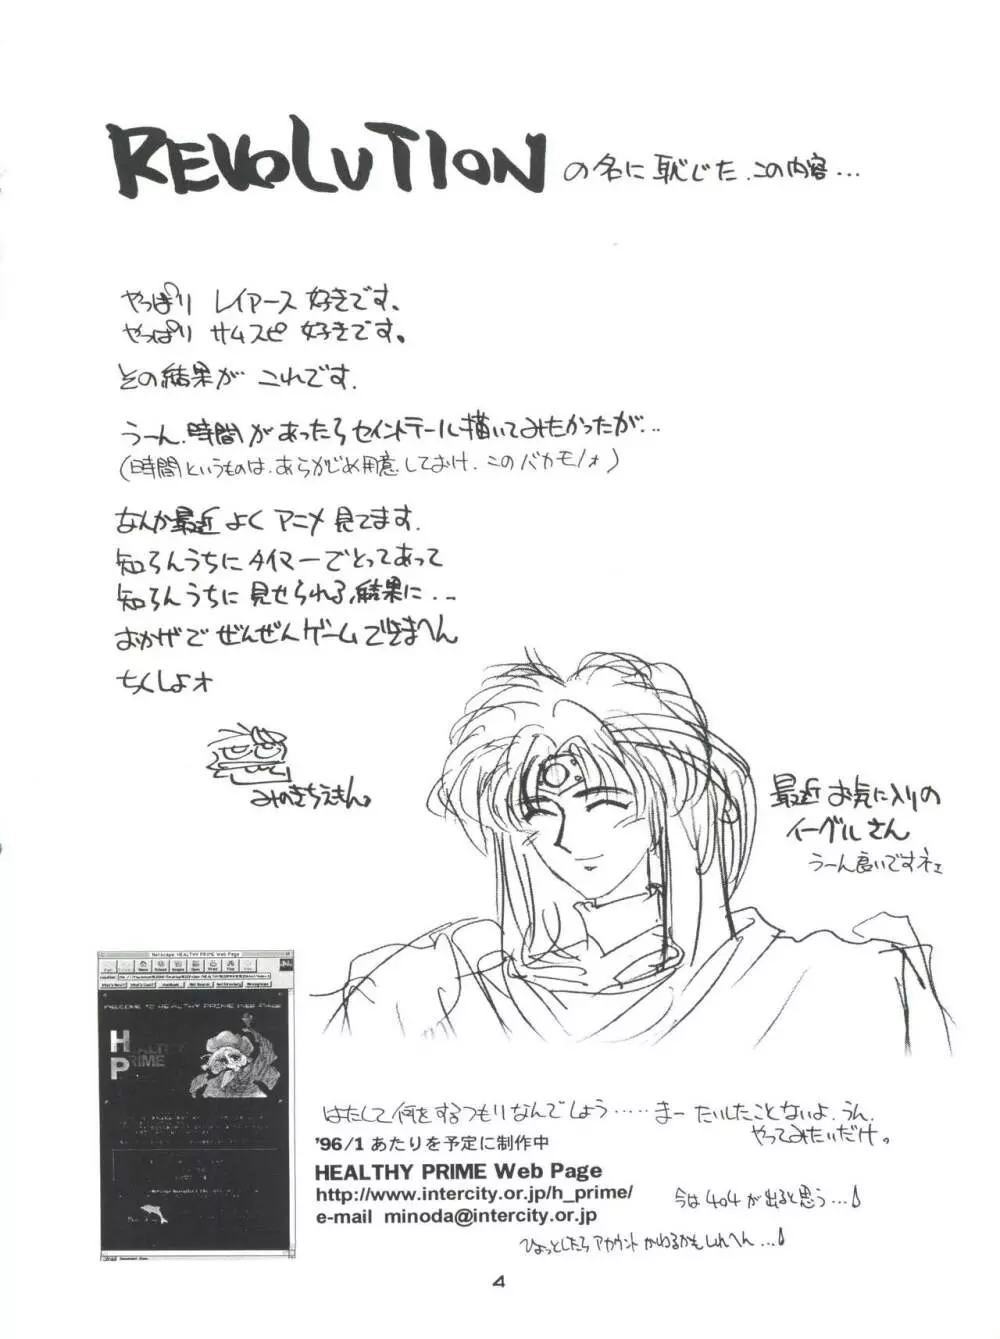 REVOLUTION の名に恥じた、この内容...
やっぱり レイアース 好きです。
やっぱり サムスピ 好きです。
その結果が これです.
うーん、時間があったらセイントテール描いてみたかったが...
(時間というものは、あらかじめ用意しておけ、このバカモノォ)
なんか最近 よく アニメ 見てます.
知らんうちに タイマーでとってあって
知らんうちに 見せられる結果に...
おかげで ぜんぜんゲームできまへん
ちくしょオ
みのきちえもん。
最近 お気に入りの
イーグルさん
うーん良いですネェ
Netscape HEALTHY PRIME Web Page
WELCOME TO HEALTHY PRIME WEB PAGE
HEALTHY
PRIME
はたして何をするつもりなんでしょう……まーたいしたことないよ、うん.
やってみたいだけ。
'96/1 あたりを予定に制作中
HEALTHY PRIME Web Page
http://www.intercity.or.jp/h_prime/
今は404が出ると思う...
e-mail minoda@intercity.or.jp
ひょっとしたらアカウントかわるかもしれへん...
4